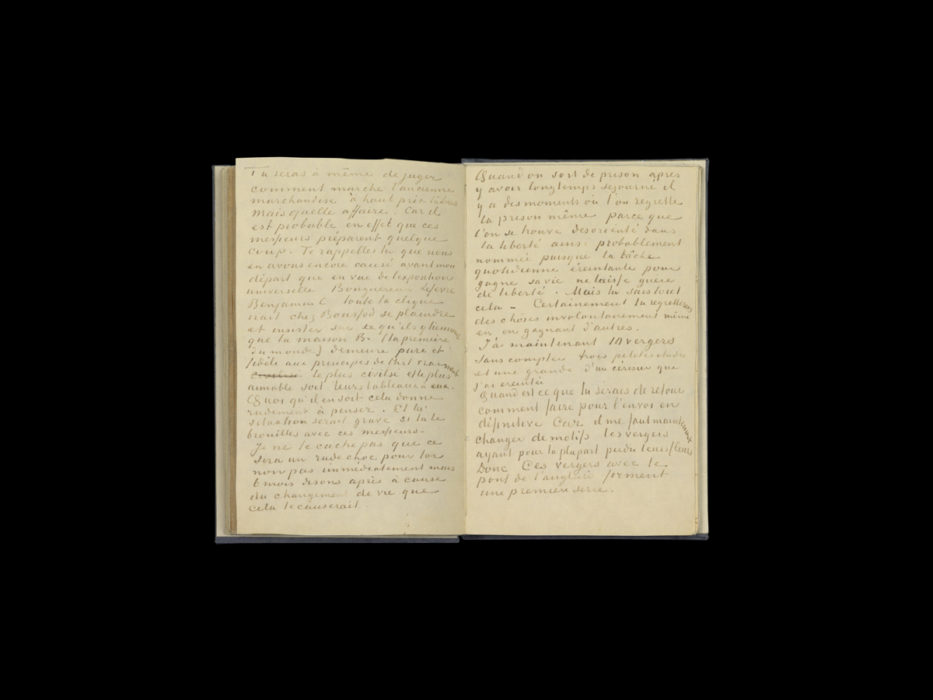 Tu seras à même de juger
comment marche l'ancienne
marchandise à haut prix
Mais quelle affaire. Car il
est probable en effet que ces
messieurs préparent quelque
coup. Te rappelles tu que nous
en avons encore causé avant mon
départ que en vue de l'exposition
universelle Bouguereau Lefevre
Benjamin C toute la clique
irait chez Boussod se plaindre
et insister sur ce qu'ils
que la maison B. (la première
du monde) demeure pure et
fidèle aux principes de l'art
le plus civilisé et le plus
aimable soit leurs tableaux à eux.
Quoi qu'il en soit cela donne
rudement à penser. Et la
situation serait grave si tu te
brouilles avec ces messieurs.
Je ne te cache pas que ce
sera un rude choc pour toi
non pas immédiatement mais
6 mois disons après à cause
du changement de vie que
cela te causerait.
Quand on sort de prison après
y avoir longtemps séjourné il
y a des moments où l'on regrette
la prison même parce que
l'on se trouve desorienté dans
la liberté ainsi probablement
nommée puisque la tâche
quotidienne éreintante pour
gagner sa vie ne laisse guère
de liberté. Mais tu sais tout
cela – Certainement tu regretteras
des choses involontairement même
en en gagnant d'autres.
J'ai maintenant 10 vergers
sans compter trois petites études
et une grande d'un cerisier que
j'ai éreintée
Quand est ce que tu serais de retour
comment faire pour l'envoi en
définitive Car il me faut maintenant
changer de motifs les vergers
ayant pour la plupart perdu leurs fleurs
Donc Ces vergers avec le
pont de l'anglais forment
une première serie.